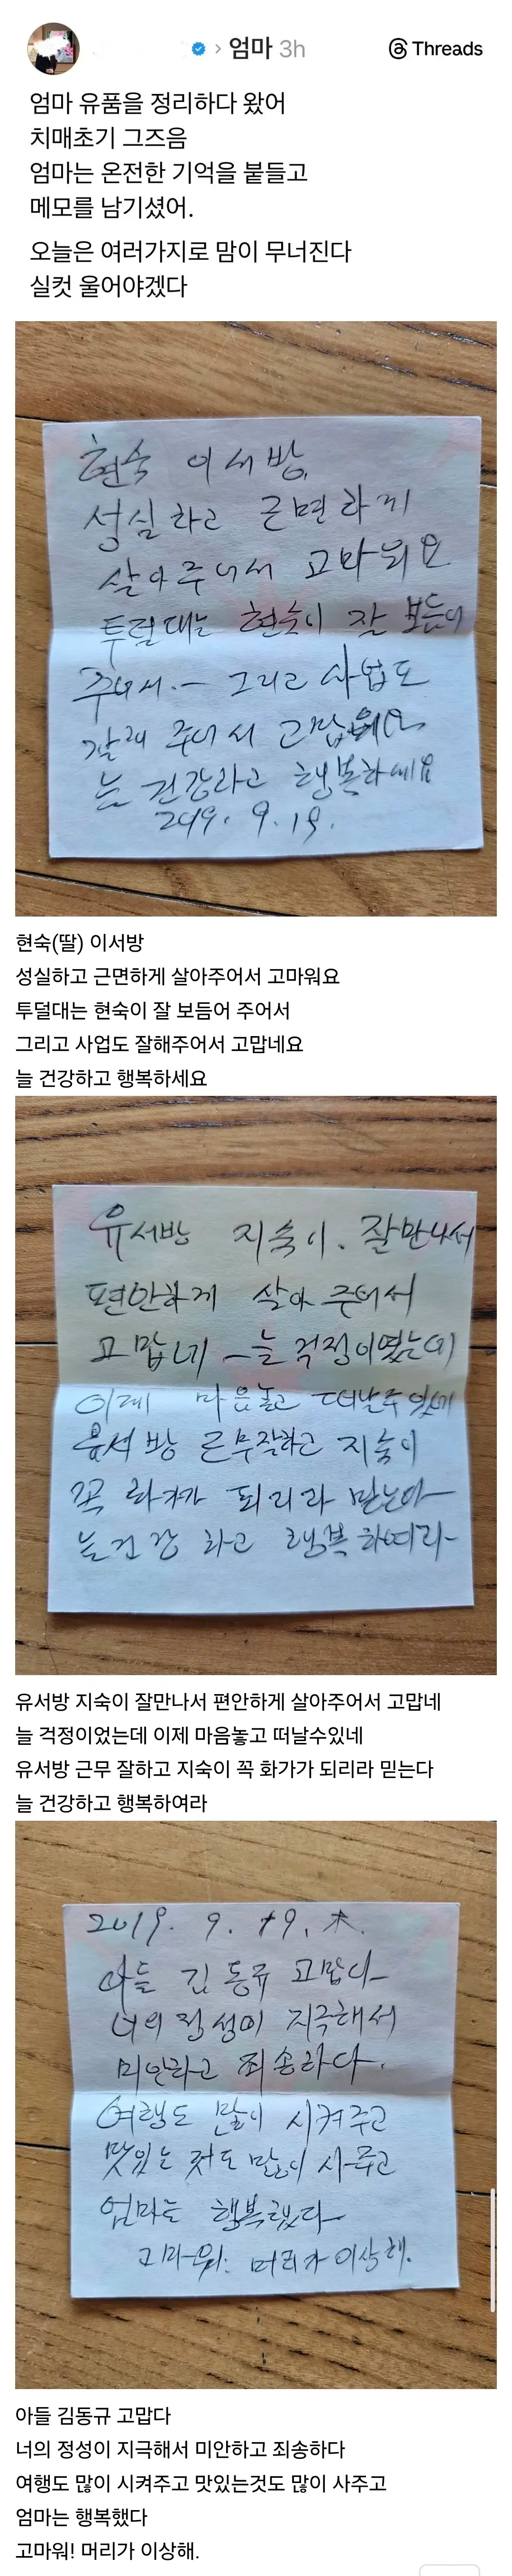 엄마 3h
Threads
엄마 유품을 정리하다 왔어
치매초기 그즈음
엄마는 온전한 기억을 붙들고
메모를 남기셨어.
오늘은 여러가지로 맘이 무너진다
실컷 울어야겠다
현숙 이서방.
성실하고 근면하게
살아주어서 고마워요
투덜대는 현숙이 잘 보듬어
주어서.— 그리고 사업도
잘해 주어서 고맙네요
늘 건강하고 행복하세요
2019. 9. 19.
현숙(딸) 이서방
성실하고 근면하게 살아주어서 고마워요
투덜대는 현숙이 잘 보듬어 주어서
그리고 사업도 잘해주어서 고맙네요
늘 건강하고 행복하세요
유서방 지숙이. 잘만나서
편안하게 살아 주어서
고맙네 — 늘 걱정이였는데
이제 마음놓고 떠날수있네
유서방 근무잘하고 지숙이
꼭 화가가 되리라 믿는다
늘건강 하고 행복하여라
유서방 지숙이 잘만나서 편안하게 살아주어서 고맙네
늘 걱정이었는데 이제 마음놓고 떠날수있네
유서방 근무 잘하고 지숙이 꼭 화가가 되리라 믿는다
늘 건강하고 행복하여라
2019. 9. 19. 木.
아들 김동규 고맙다
너의 정성이 지극해서
미안하고 죄송하다.
여행도 많이 시켜주고
맛있는 것도 많이 사주고
엄마는 행복했다
고마워! 머리가 이상해.
아들 김동규 고맙다
너의 정성이 지극해서 미안하고 죄송하다
여행도 많이 시켜주고 맛있는것도 많이 사주고
엄마는 행복했다
고마워! 머리가 이상해.